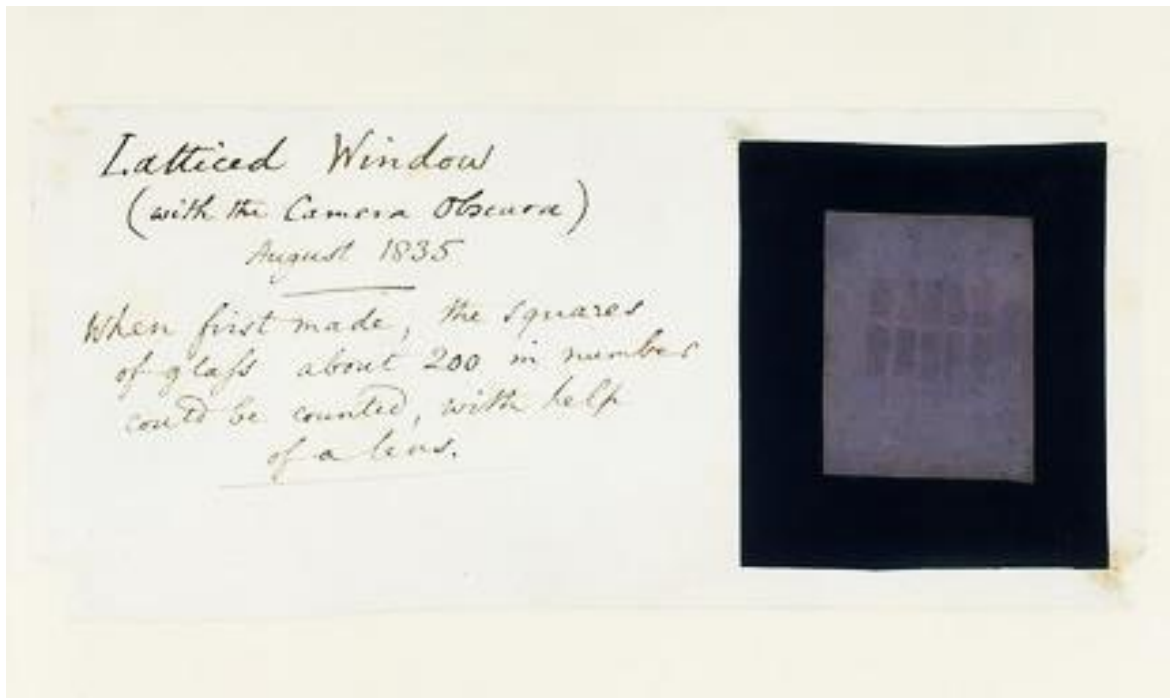 Latticed Window
(with the Camera Obscura)
August 1835
When first made, the squares
of glafs about 200 in number
could be counted, with help
of a lens.